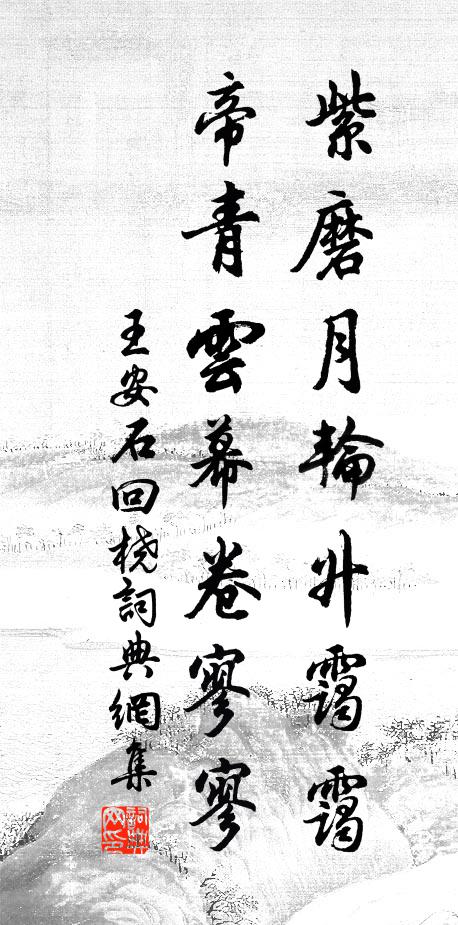 紫磨月輪升靄靄
帝青雲幕卷寥寥
王安石回橈詞典網集